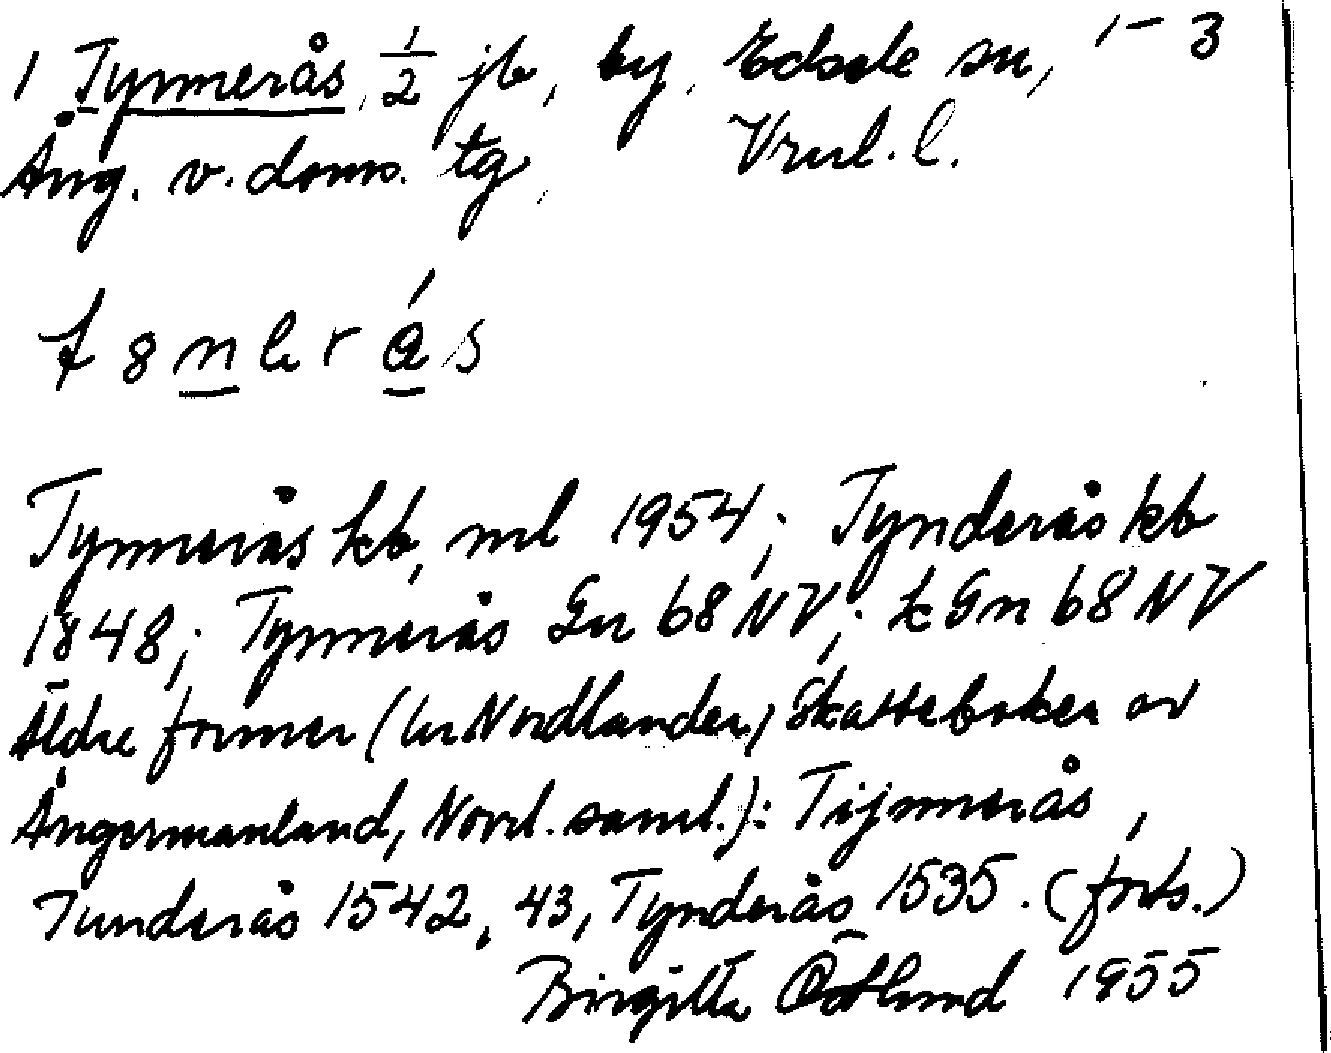 1 Tynnerås, 1/2 jb, by, Edsele sn, 1-3
Ång. v. doms. tg,
t 8 n e r á s
Tynnerås kb, ml 1954; Tynderås kb
1848; Tynnerås Gn 68 NV; k Gn 68 NV
Äldre former (ur Nordlander, Skatteböker ov
Ångermanland, Norrl. saml.): Tijnnerås,
Tunderås 1542, 43, Tynderås 1535. (forts.)
Birgitta Östlund 1955